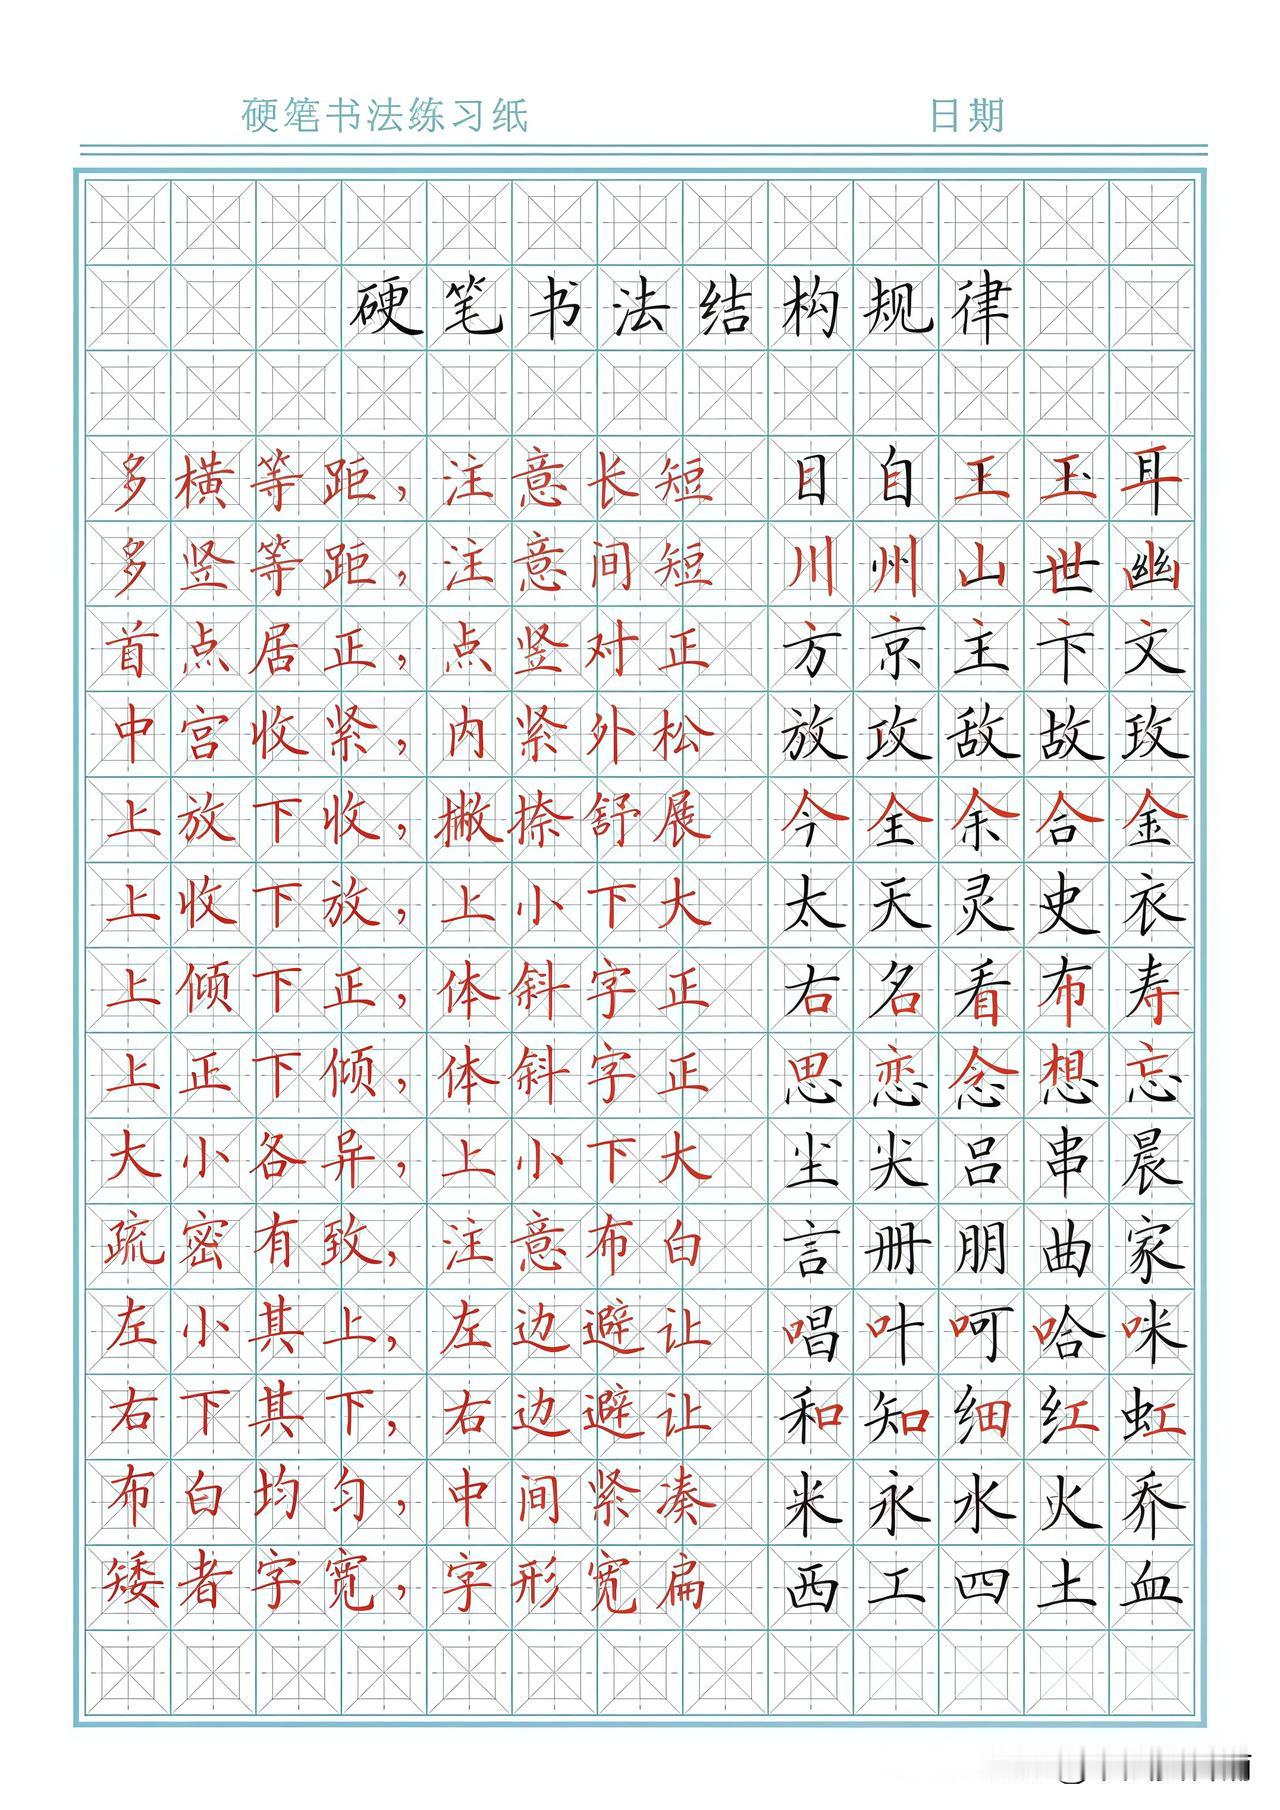 硬笔书法练习纸 日期
硬笔书法结构规律
多横等距，注意长短 日自王玉耳
多竖等距，注意间短 川州山世幽
首点居正，点竖对正 方京主卞文
中宫收紧，内紧外松 放攻敌故玫
上放下收，撇捺舒展 今全余合金
上收下放，上小下大 太天灵史衣
上倾下正，体斜字正 右名看布寿
上正下倾，体斜字正 思恋念想忘
大小各异，上小下大 尘尖吕串晨
疏密有致，注意布白 言册朋曲家
左小其上，左边避让 唱叶呵哈咪
右下其下，右边避让 和知细红虹
布白均匀，中间紧凑 米永水火乔
矮者字宽，字形宽扁 西工四土血